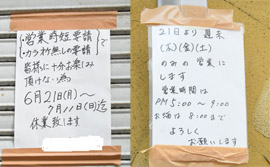 ・営業時短要請
・カラオケ無しの要請 で
皆様に十分お楽しみ
頂けない為
6月21日(月)〜
7月11日(日)迄
休業致します
21日より 週末
(木)(金)(土)
のみの 営業に
します
営業時間は
PM 5:00 〜 9:00
お酒は 8:00まで
よろしく
お願いします